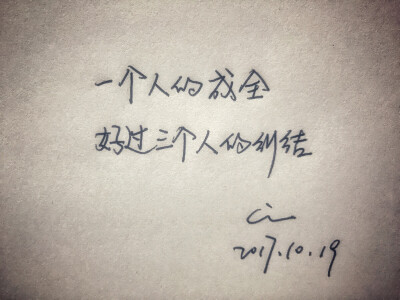 一个人的成全
好过三个人的纠结
2017.10.19